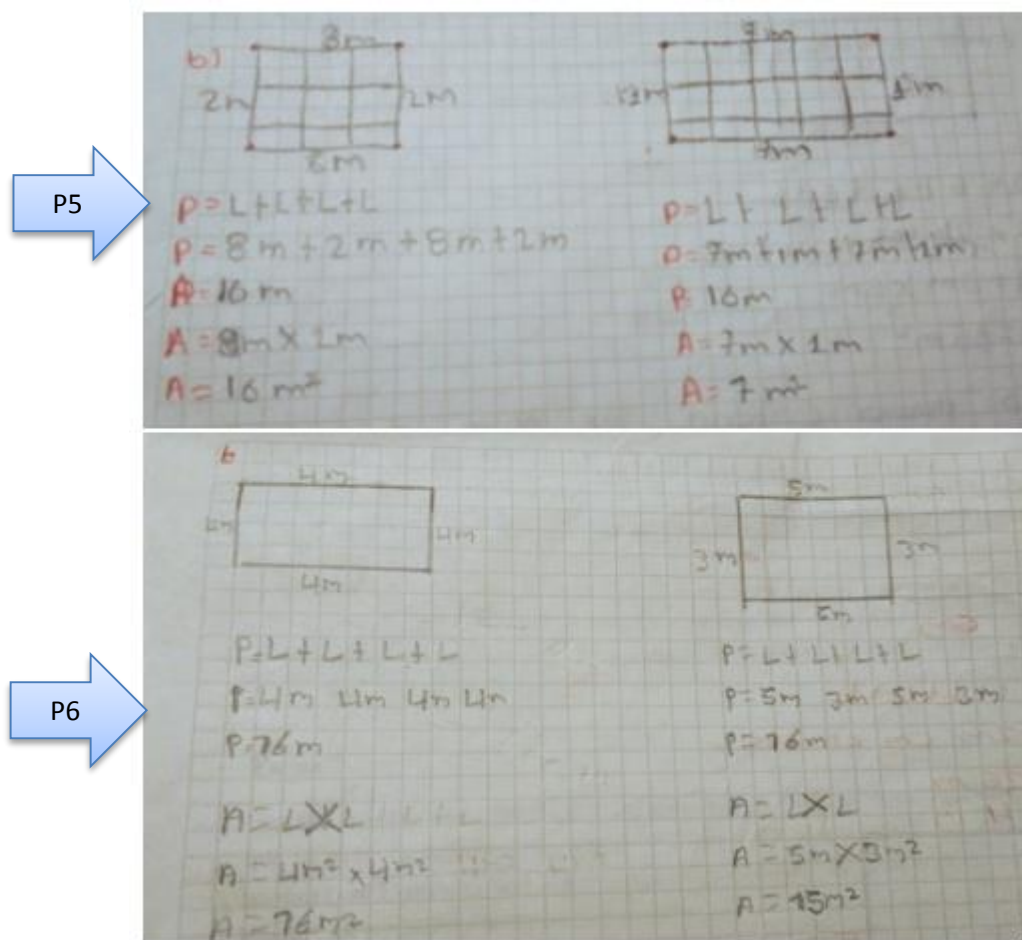 P5
b)
8m
2m
2m
6m
P=L+L+L+L
P=8m+2m+8m+2m
P=16m
A=8m×2m
A=16m²
7m
1m
1m
7m
P=L+L+L+L
P=7m+1m+7m+1m
P=16m
A=7m×1m
A=7m²
P6
b
4m
4m
4m
P=L+L+L+L
P=4m 4m 4m 4m
P=16m
A=L×L
A=4m²×4m²
A=16m²
5m
3m
3m
5m
P=L+L+L+L
P=5m 3m 5m 3m
P=16m
A=L×L
A=5m×3m²
A=15m²